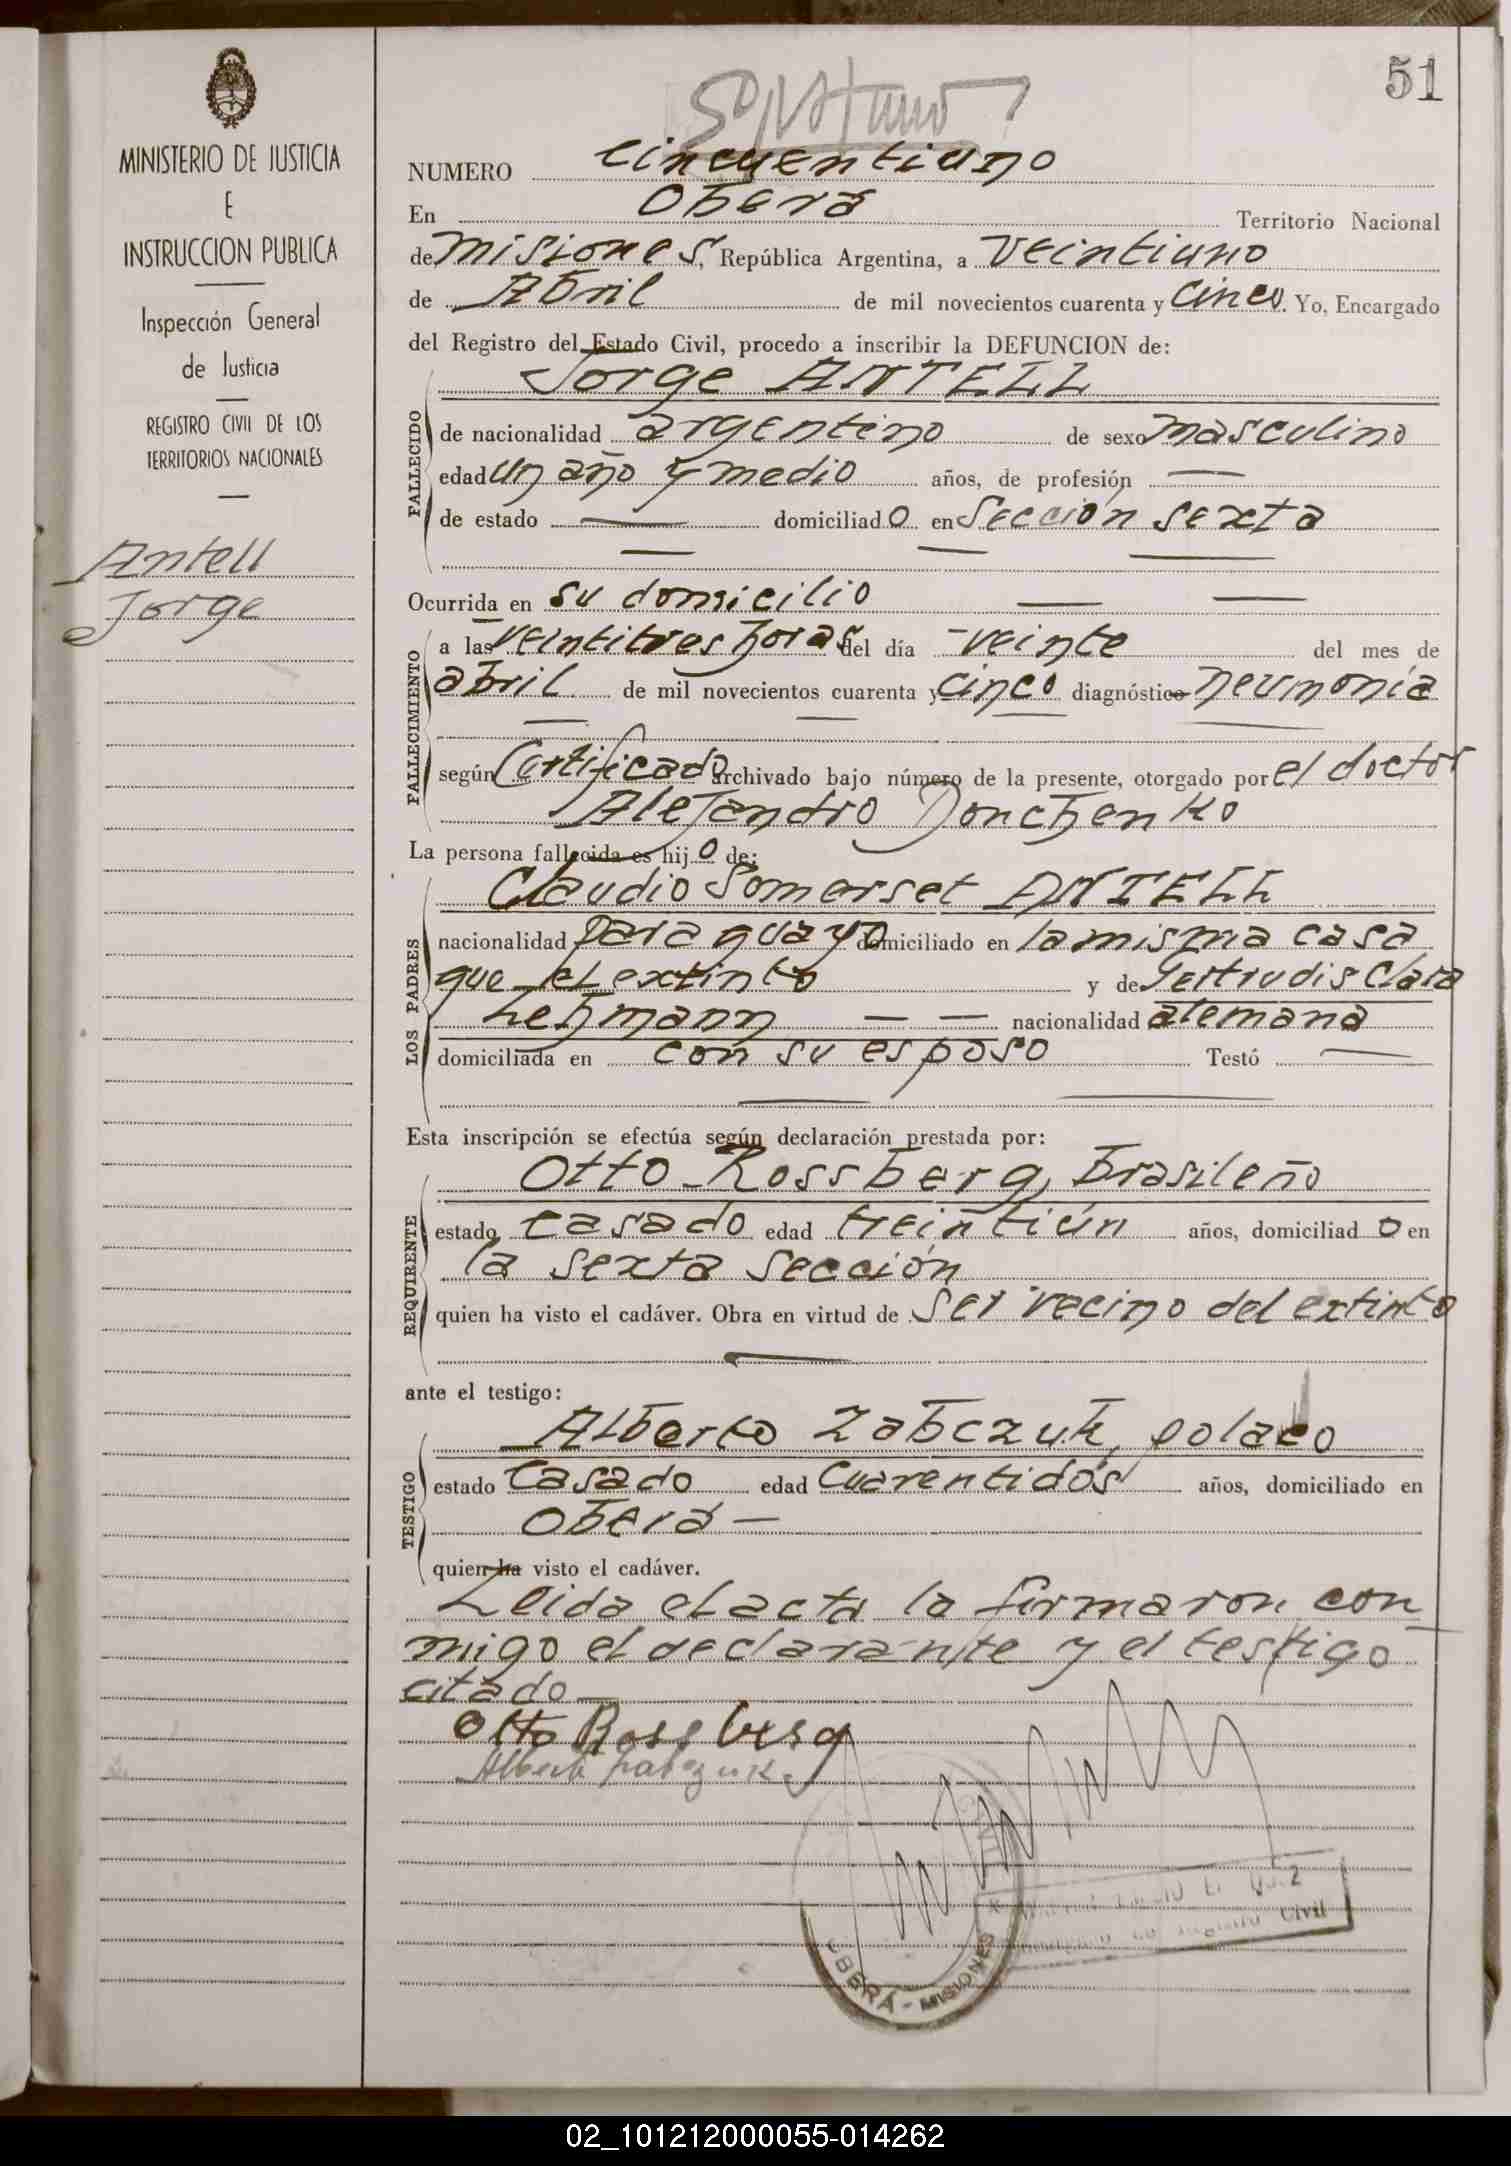 51
MINISTERIO DE JUSTICIA
E
INSTRUCCION PUBLICA
Inspección General
de Justicia
REGISTRO CIVIL DE LOS
TERRITORIOS NACIONALES
Antell
Jorge
NUMERO cincuentiuno
En Oberá Territorio Nacional
de Misiones, República Argentina, a veintiuno
de Abril de mil novecientos cuarenta y cinco. Yo, Encargado
del Registro del Estado Civil, procedo a inscribir la DEFUNCION de:
Jorge ANTELL
FALLECIDO
de nacionalidad argentino de sexo masculino
edad un año y medio años, de profesión —
de estado — domiciliado en Sección sexta
— — —
Ocurrida en su domicilio — —
FALLECIMIENTO
a las veintitres horas del día veinte del mes de
abril de mil novecientos cuarenta y cinco diagnóstico neumonía
— — — —
según Certificado archivado bajo número de la presente, otorgado por el doctor
Alejandro Donchenko
La persona fallecida es hijo de:
LOS PADRES
Claudio Somerset ANTELL
nacionalidad paraguayo domiciliado en la misma casa
que el extinto y de Gertrudis Clara
Lehmann — — nacionalidad alemana
domiciliada en con su esposo Testó —
— —
Esta inscripción se efectúa según declaración prestada por:
REQUIRENTE
Otto Rossberg, brasileño
estado casado edad treintiún años, domiciliado en
la sexta sección
quien ha visto el cadáver. Obra en virtud de ser vecino del extinto
—
ante el testigo:
TESTIGO
Alberto Zabczuk, polaco
estado casado edad cuarentidós años, domiciliado en
Oberá —
quien ha visto el cadáver.
Leida el acta la firmaron con
migo el declarante y el testigo
citado —
Otto Rossberg
Alberto Zabczuk
OBERÁ - MISIONES
Civil
02_101212000055-014262